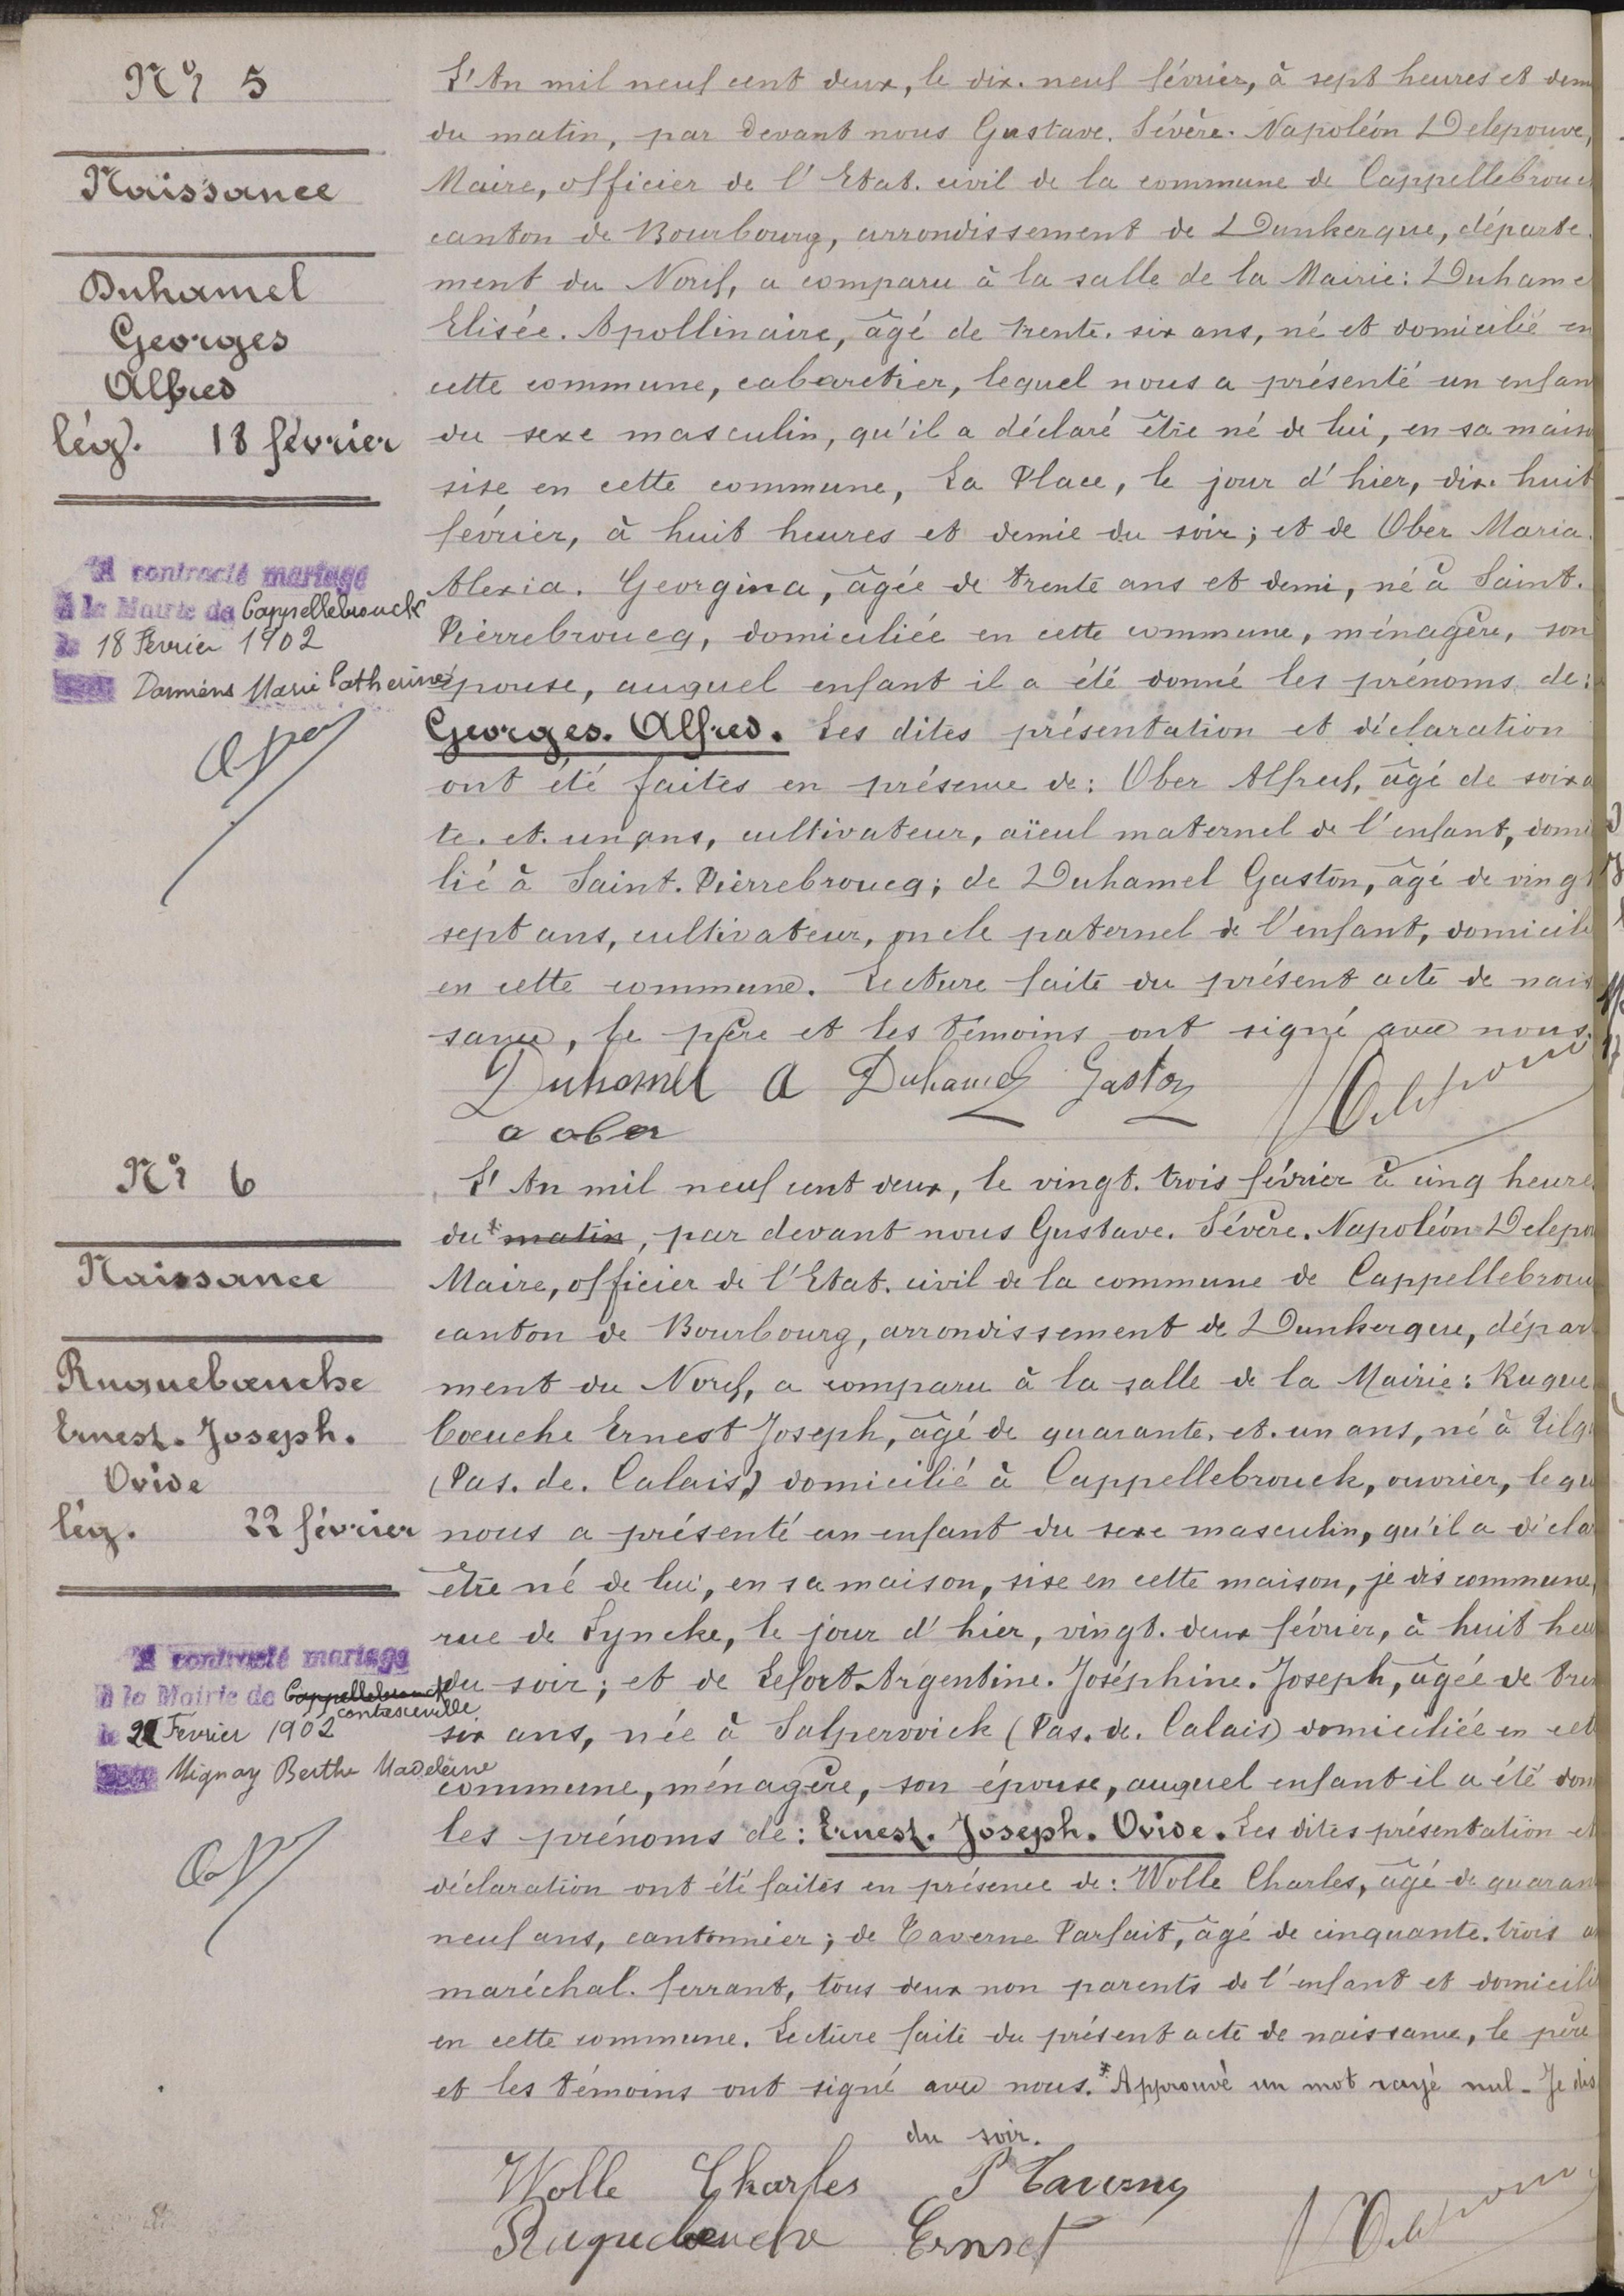 Nº 5
Naissance
Duhamel
Georges
Alfred
lég. 18 février
A contracté mariage
à la Mairie de Cappellebrouck
le 18 Février 1902
Damiens Marie Catherine
L'An mil neuf cent deux, le dix-neuf février, à sept heures et dem
du matin, par devant nous Gustave-Sévère-Napoléon Delepouve,
Maire, officier de l'Etat-civil de la commune de Cappellebrouc
canton de Bourbourg, arrondissement de Dunkerque, départe-
ment du Nord, a comparu à la salle de la Mairie: Duhame
Elisée-Apollinaire, âgé de trente-six ans, né et domicilié en
cette commune, cabaretier, lequel nous a présenté un enfan
du sexe masculin, qu'il a déclaré être né de lui, en sa maiso
sise en cette commune, La Place, le jour d'hier, dix-huit
février, à huit heures et demie du soir; et de Ober Maria-
Alexia-Georgina, âgée de trente ans et demi, né à Saint-
Pierrebroucq, domiciliée en cette commune, ménagère, son
épouse, auquel enfant il a été donné les prénoms de:
Georges-Alfred. Les dites présentation et déclaration
ont été faites en présence de: Ober Alfred, âgé de soixa
te-et-un ans, cultivateur, aïeul maternel de l'enfant, domi
lié à Saint-Pierrebroucq; de Duhamel Gaston, âgé de vingt
sept ans, cultivateur, oncle paternel de l'enfant, domicilé
en cette commune. Lecture faite du présent acte de nais
sance, le père et les témoins ont signé avec nous.
Duhamel A Duhamel Gaston Delepouve
a ober
Nº 6
Naissance
Ruquebœuche
Ernest-Joseph-
Ovide
lég. 22 février
A contracté mariage
à la Mairie de Cappellebrouck
contescville
le 22 Février 1902
Mignay Berthe Madeleine
L'An mil neuf cent deux, le vingt-trois février à cinq heure
du * matin, par devant nous Gustave-Sévère-Napoléon Delepo
Maire, officier de l'Etat-civil de la commune de Cappellebrou
canton de Bourbourg, arrondissement de Dunkerque, dépar
ment du Nord, a comparu à la salle de la Mairie: Ruque
bœuche Ernest Joseph, âgé de quarante-et-un ans, né à Tilq
(Pas-de-Calais) domicilié à Cappellebrouck, ouvrier, lequ
nous a présenté un enfant du sexe masculin, qu'il a décla
être né de lui, en sa maison, sise en cette maison, je dis commune,
rue de Lyncke, le jour d'hier, vingt-deux février, à huit heu
du soir; et de Lefort Argentine-Joséphine-Joseph, âgée de tren
six ans, née à Salpervvick (Pas-de-Calais) domiciliée en cet
commune, ménagère, son épouse, auquel enfant il a été don
les prénoms de: Ernest-Joseph-Ovide. Les dites présentation et
déclaration ont été faites en présence de: Wolle Charles, âgé de quaran
neuf ans, cantonnier; de Taverne Parfait, âgé de cinquante-trois a
maréchal-ferrant, tous deux non parents de l'enfant et domicili
en cette commune. Lecture faite du présent acte de naissance, le père
et les témoins ont signé avec nous. * Approuvé un mot rayé nul - Je dis
du soir.
Wolle Charles P Taverne
Ruquebœuche Ernest Delepouve